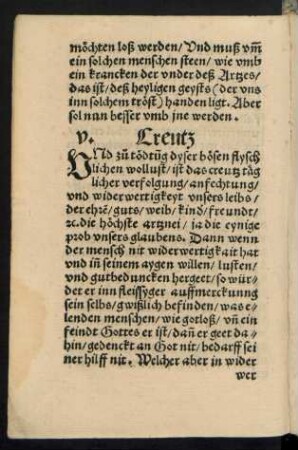 möchten loß werden/ Und muß vm̃
ein solchen menschen steen/ wie vmb
ein krancken der vnder deß Artzes/
das ist/ deß heyligen geysts (der vns
inn solchem tröst) handen ligt. Aber
sol nun besser vmb jne werden.
v. Creutz
VNd zů tödtũg dyser bösen flysch
lichen wollust/ ist das creutz täg
licher verfolgung/ anfechtung/
vnd widerwertigkeyt vnsers leibs/
der ehrẽ/ guts/ weib/ kind/ freundt/
ꝛc. die höchste artznei/ ja die eynige
prob vnsers glaubens. Dann wenn
der mensch nit widerwertigkait hat
vnd iñ seinem aygen willen/ lusten/
vnd gutbeduncken hergeet/ so wür-
det er inn fleissyger auffmerckunng
sein selbs/ gwißlich befinden/ was e-
lenden menschen/ wie gotloß/ vñ ein
feindt Gottes er ist/ dañ er geet da-
hin/ gedenckt an Got nit/ bedarff sei
ner hilff nit. Welcher aber in wider
wer